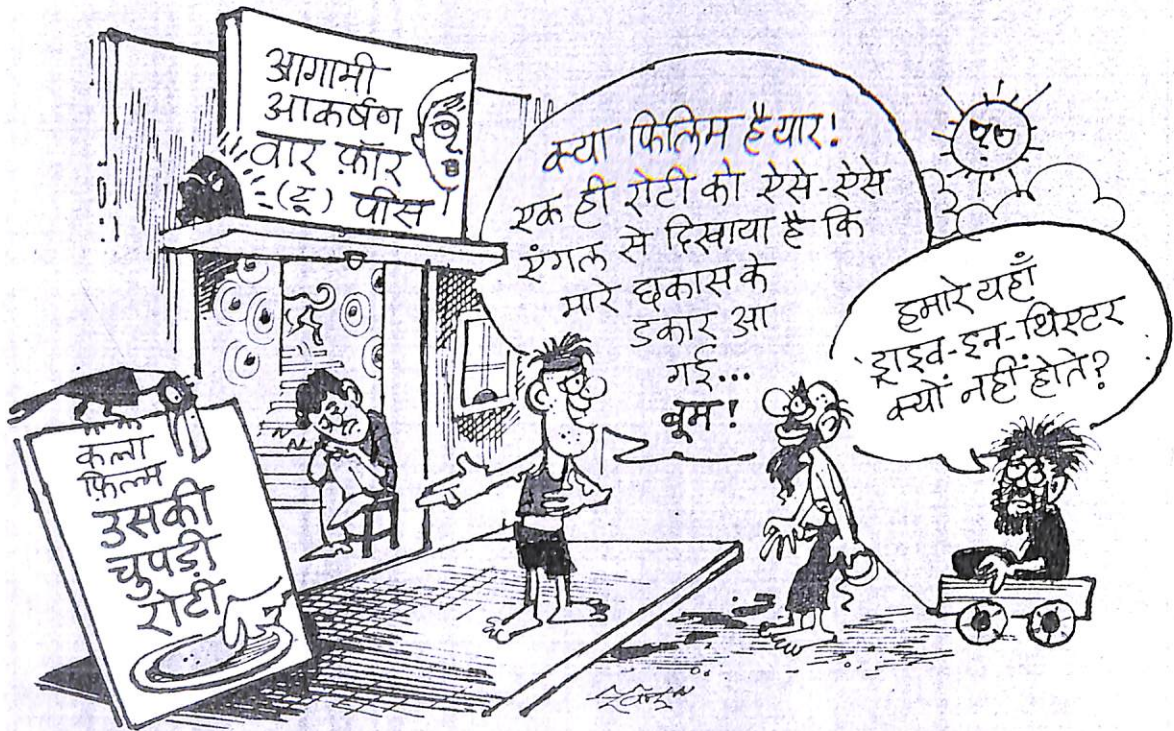 आगामी
आकर्षण
वार फ़ॉर
(टू) पीस
क्या फिलिम है यार!
एक ही रोटी को ऐसे-ऐसे
एंगल से दिखाया है कि
मारे छकास के
डकार आ
गई...
बूम!
हमारे यहाँ
ड्राइव-इन-थिएटर
क्यों नहीं होते?
कला
फ़िल्म
उसकी
चुपड़ी
रोटी